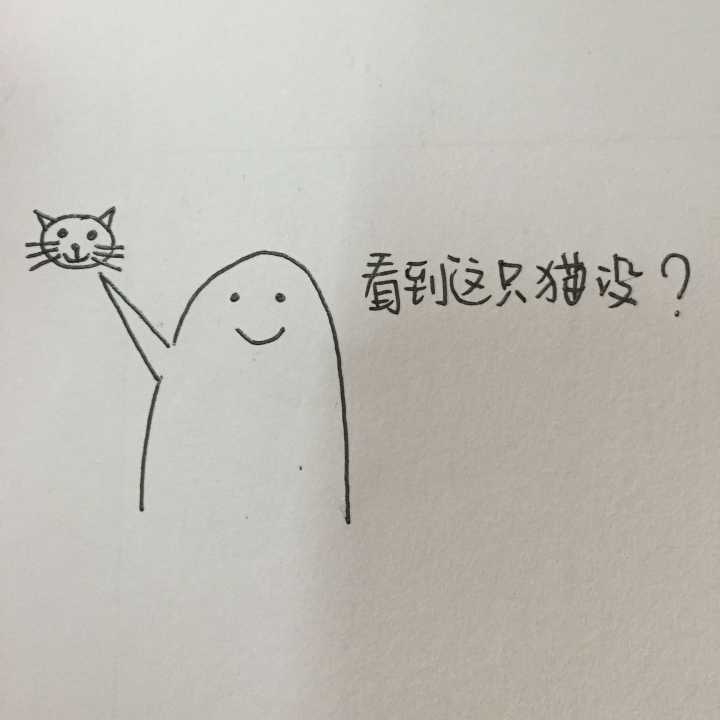 看到这只猫没？